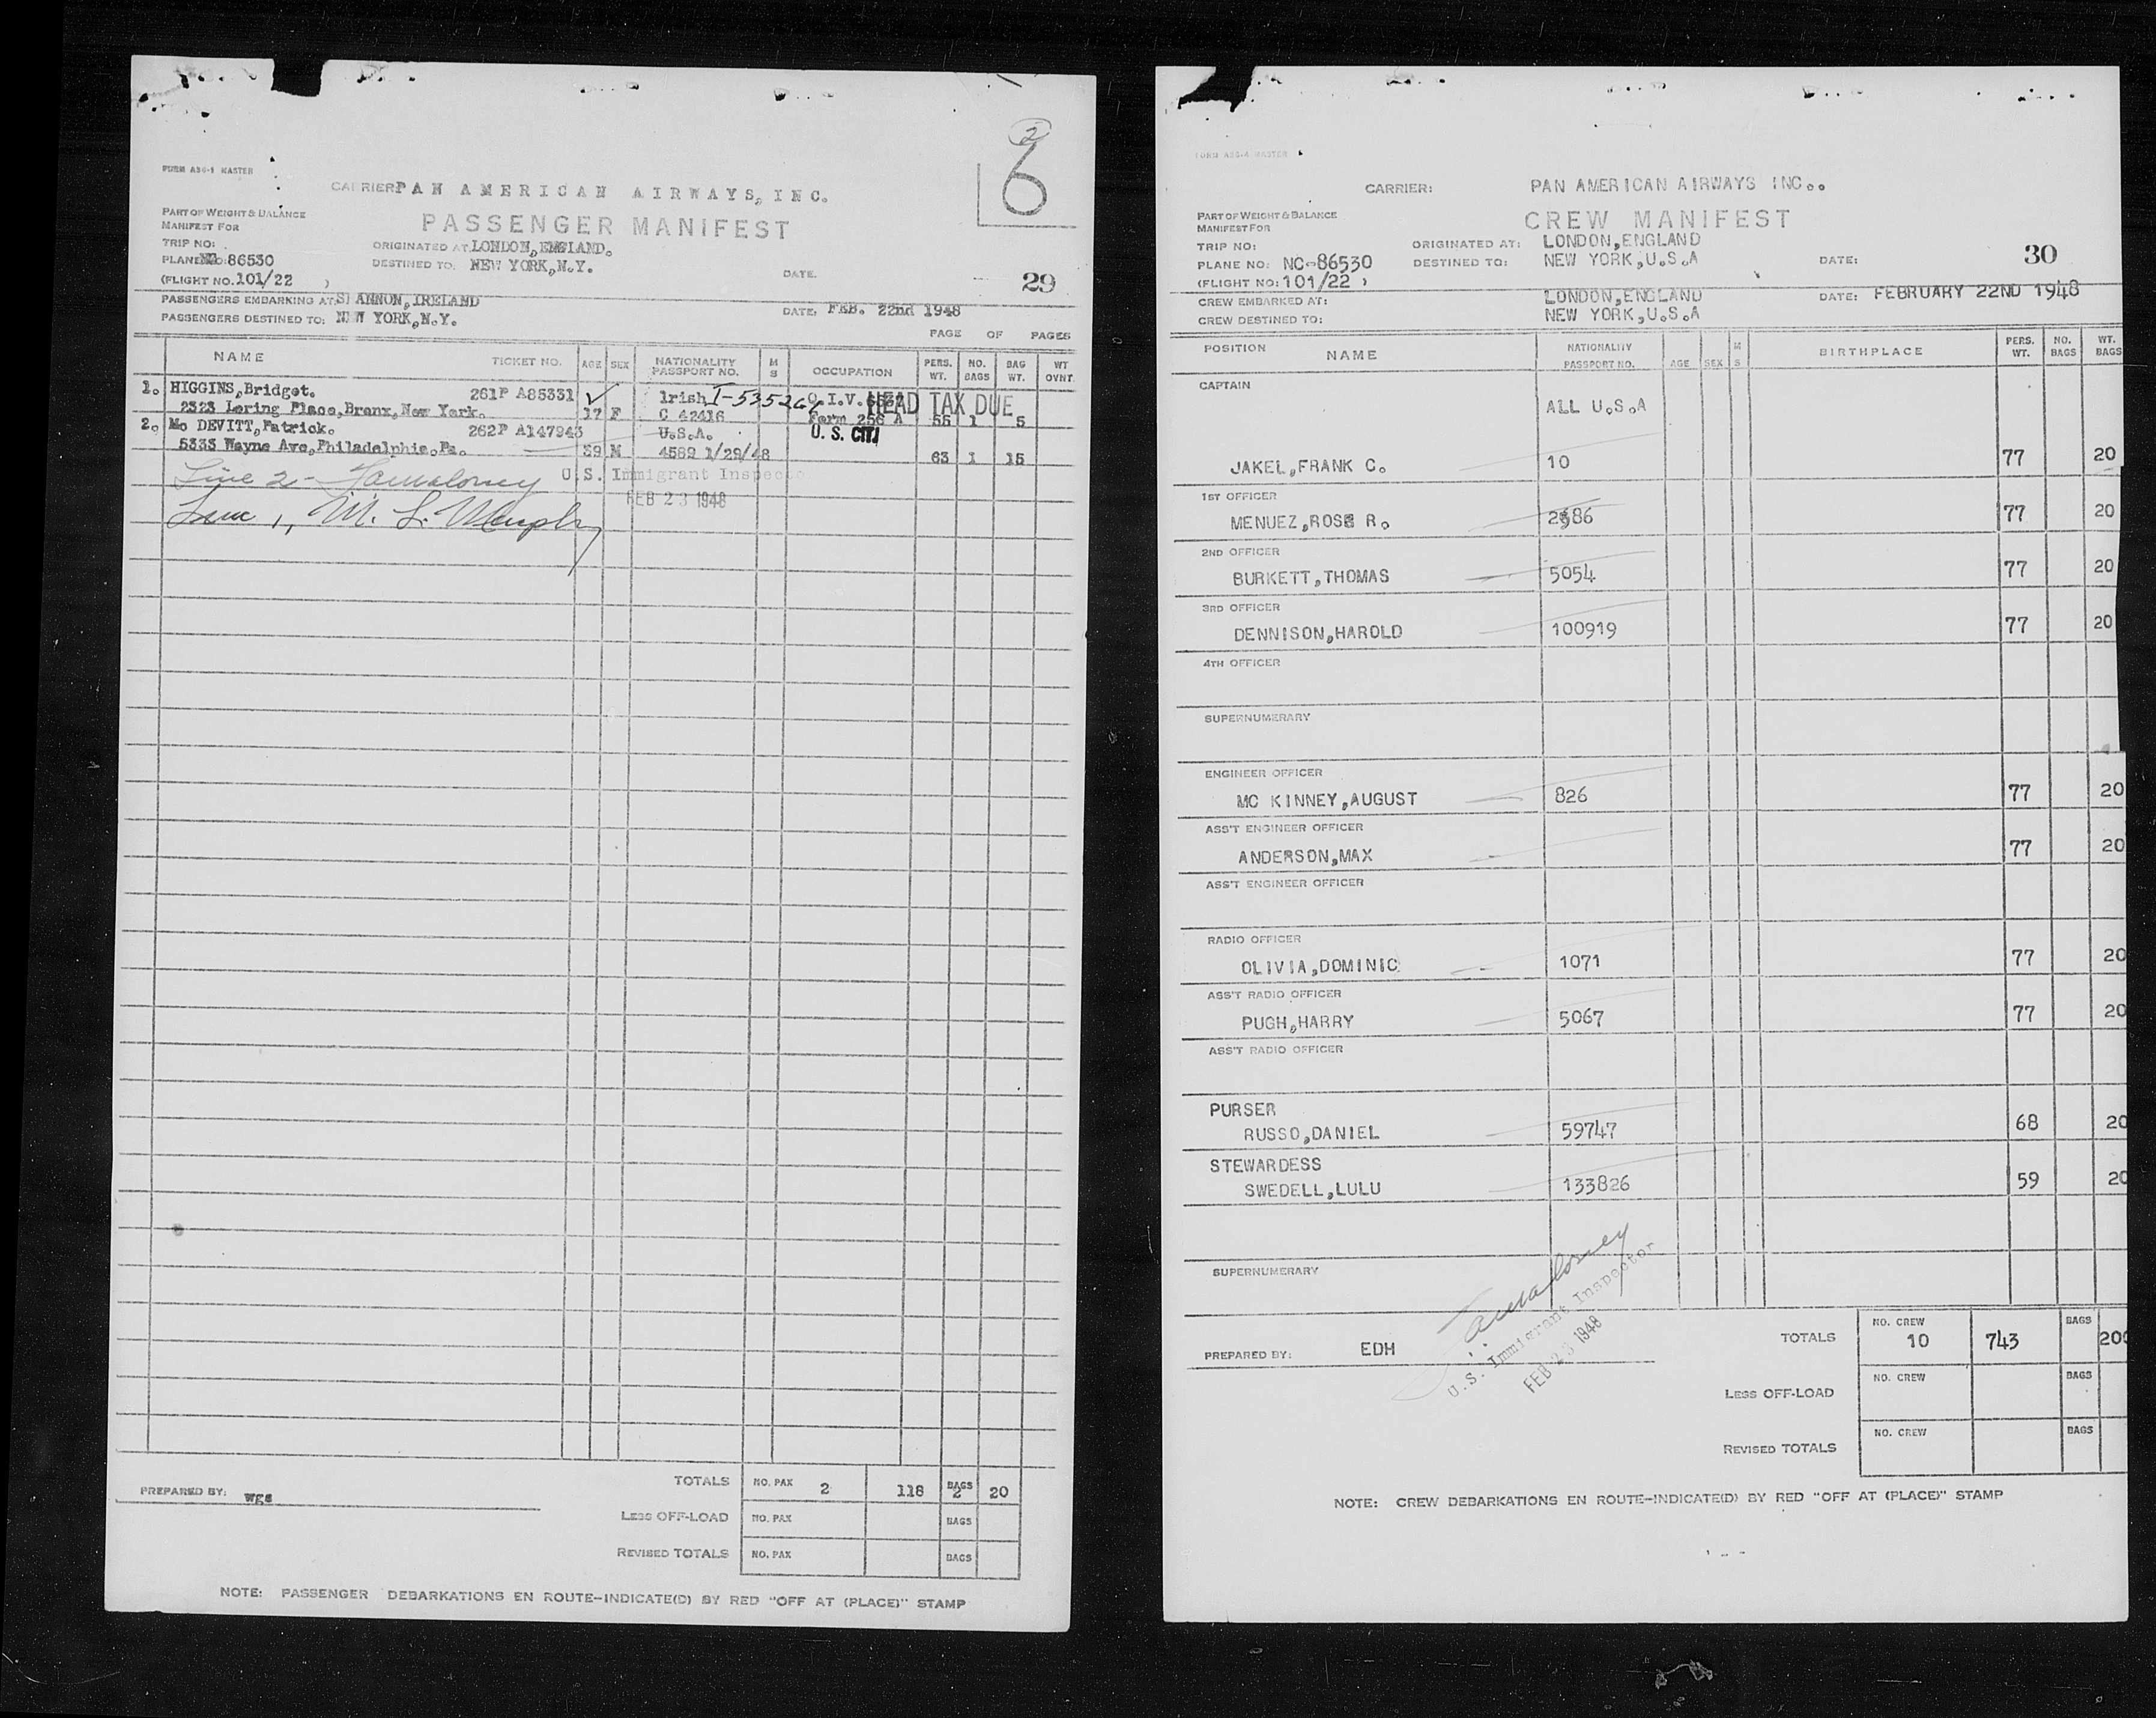 2
6
FORM ASG-1 MASTER
CARRIER PAN AMERICAN AIRWAYS, INC.
PART OF WEIGHT & BALANCE
MANIFEST FOR
PASSENGER MANIFEST
TRIP NO:
ORIGINATED AT: LONDON, ENGLAND.
PLANE NO: 86530
DESTINED TO: NEW YORK, N.Y.
DATE.
29
(FLIGHT NO. 101/22 )
PASSENGERS EMBARKING AT: SHANNON, IRELAND
DATE: FEB. 22nd 1948
PASSENGERS DESTINED TO: NEW YORK, N.Y.
PAGE OF PAGES
NAME TICKET NO. AGE SEX NATIONALITY PASSPORT NO. M S OCCUPATION PERS. WT. NO. BAGS BAG WT. WT OVNT
1. HIGGINS, Bridget. 261P A85331 Irish I-535264 Q.I.V. HEAD TAX DUE
2323 Loring Place, Bronx, New York. 17 F C 42416 Form 256 A 55 1 5
2. Mc DEVITT, Patrick. 262P A147943 U.S.A. U.S. CIT.
5333 Wayne Ave, Philadelphia, Pa. 39 M 4589 1/29/48 63 1 15
Line 2 -
U.S. Immigrant Inspec
FEB 23 1948
Line 1, M. L. Murphy
TOTALS NO. PAX 2 118 BAGS 2 20
PREPARED BY: wgs
LESS OFF-LOAD NO. PAX BAGS
REVISED TOTALS NO. PAX BAGS
NOTE: PASSENGER DEBARKATIONS EN ROUTE-INDICATE(D) BY RED "OFF AT (PLACE)" STAMP
FORM ASG-4 MASTER
CARRIER: PAN AMERICAN AIRWAYS INC..
PART OF WEIGHT & BALANCE
MANIFEST FOR
CREW MANIFEST
TRIP NO:
ORIGINATED AT: LONDON, ENGLAND
PLANE NO: NC-86530
DESTINED TO: NEW YORK, U.S.A
DATE:
30
(FLIGHT NO: 101/22 )
CREW EMBARKED AT: LONDON, ENGLAND
DATE: FEBRUARY 22ND 1948
CREW DESTINED TO: NEW YORK, U.S.A
POSITION NAME NATIONALITY PASSPORT NO. AGE SEX M S BIRTHPLACE PERS. WT. NO. BAGS WT. BAGS
CAPTAIN
ALL U.S.A
JAKEL, FRANK C. 10 77 20
1ST OFFICER
MENUEZ, ROSS R. 2586 77 20
2ND OFFICER
BURKETT, THOMAS 5054 77 20
3RD OFFICER
DENNISON, HAROLD 100919 77 20
4TH OFFICER
SUPERNUMERARY
ENGINEER OFFICER
MC KINNEY, AUGUST 826 77 20
ASS'T ENGINEER OFFICER
ANDERSON, MAX 77 20
ASS'T ENGINEER OFFICER
RADIO OFFICER
OLIVIA, DOMINIC 1071 77 20
ASS'T RADIO OFFICER
PUGH, HARRY 5067 77 20
ASS'T RADIO OFFICER
PURSER
RUSSO, DANIEL 59747 68 20
STEWARDESS
SWEDELL, LULU 133826 59 20
SUPERNUMERARY
U.S. Immigrant Inspector
FEB 23 1948
PREPARED BY: EDH
TOTALS NO. CREW 10 743 BAGS 200
LESS OFF-LOAD NO. CREW BAGS
REVISED TOTALS NO. CREW BAGS
NOTE: CREW DEBARKATIONS EN ROUTE-INDICATE(D) BY RED "OFF AT (PLACE)" STAMP